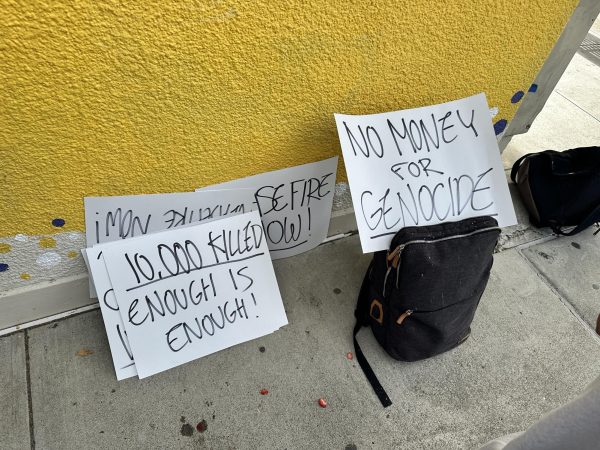 SEFIRE
OW!
10,000 KILLED
ENOUGH IS
ENOUGH!
NO MONEY
FOR
GENOCIDE